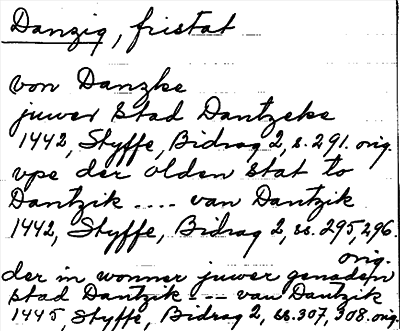 Danzig, fristat
von Danzke
juwer stad Dantzeke
1442, Styffe, Bidrag 2, s. 291. orig.
vpe der olden stat to
Dantzik .... van Dantzik
1442, Styffe, Bidrag 2, ss. 295, 296.
orig.
der in wonner juwer genaden
stad Dantzik --- van Dantzik
1445, Styffe, Bidrag 2, ss. 307, 308. orig.